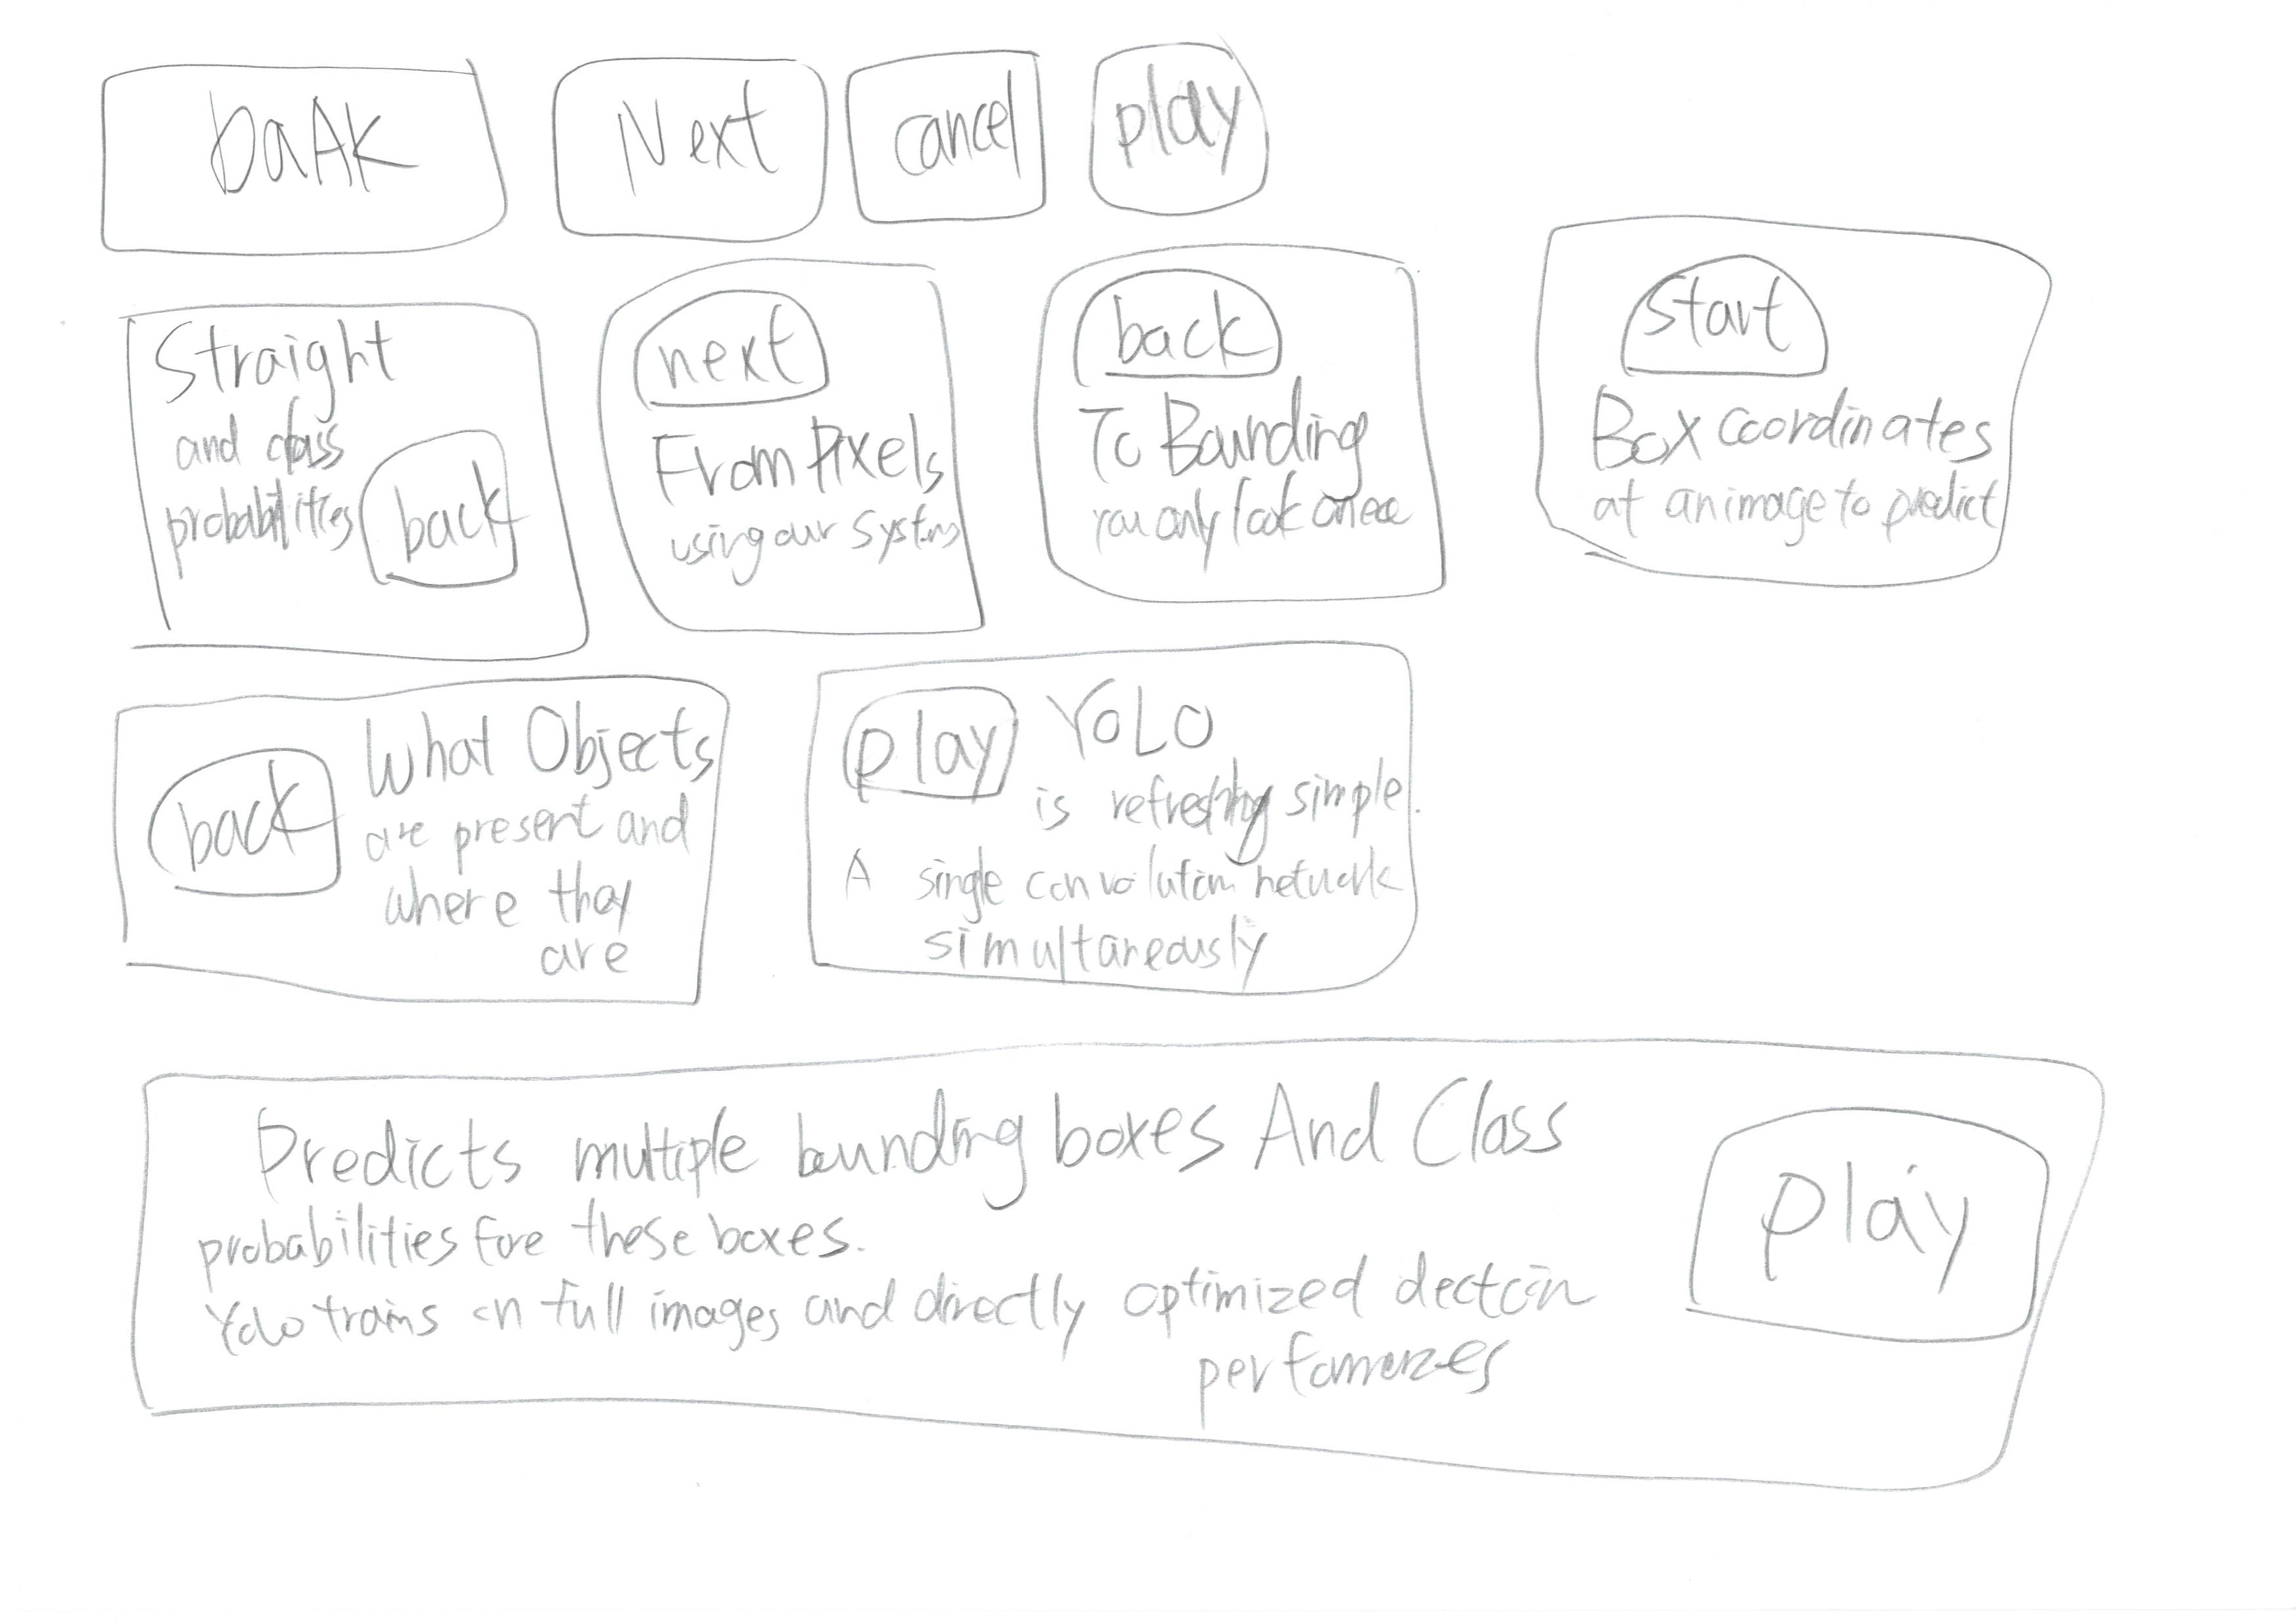 baAk
Next
cancel
play
Straight
and class
probabilities
back
next
From Pixels
using our system
back
To Bounding
you only look once
start
Box coordinates
at an image to predict
back
What Objects
are present and
where they
are
play
YOLO
is refreshing simple.
A single convolution network
simultaneously
Predicts multiple bunding boxes And Class
probabilities fore these boxes.
Yolo trains on full images and directly optimized dectcin
play